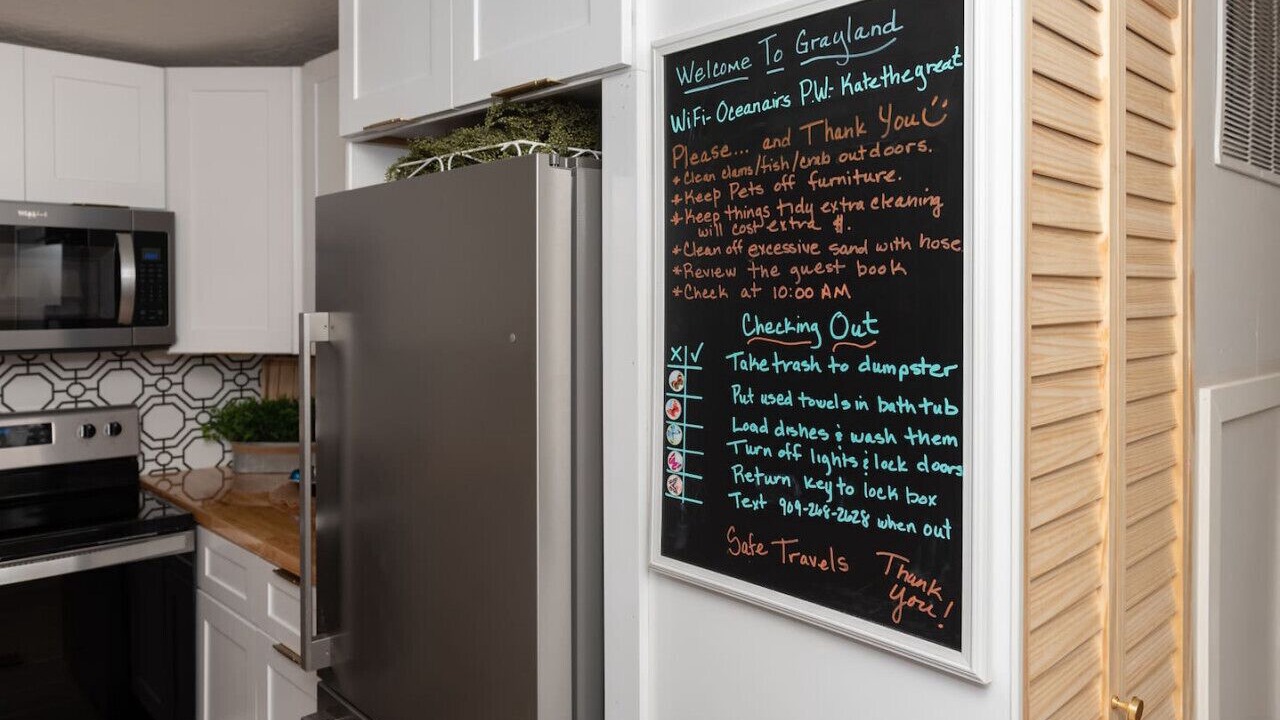 Welcome To Grayland
WiFi- Oceanairs P.W- Katethegreat
Please... and Thank You
*Clean clams/fish/crab outdoors.
*Keep Pets off furniture.
*Keep things tidy extra cleaning
will cost extra $.
*Clean off excessive sand with hose
*Review the guest book
*Check at 10:00 AM
Checking Out
X ✓
Take trash to dumpster
Put used towels in bath tub
Load dishes & wash them
Turn off lights & lock doors
Return key to lock box
Text 909-268-2628 when out
Safe Travels
Thank
You!